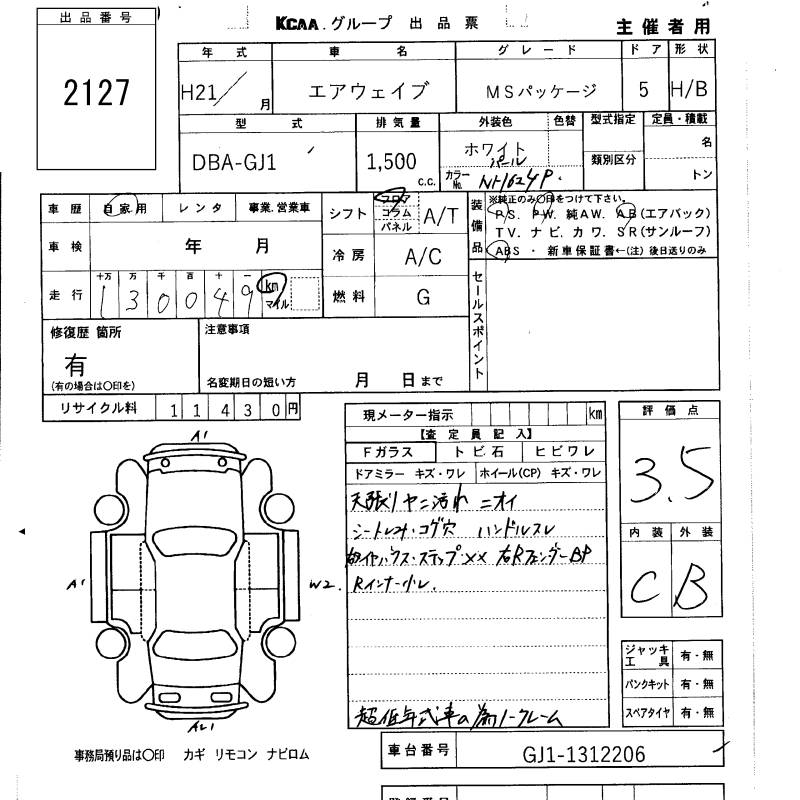 出品番号
KCAA.グループ 出品票
主催者用
2127
年式 車名 グレード ドア 形状
H21/月 エアウェイブ MSパッケージ 5 H/B
型式 排気量 外装色 色替 型式指定 定員・積載
DBA-GJ1 1,500 c.c. ホワイトパール 類別区分 名
カラーNo. NH624P. トン
車歴 自家用 レンタ 事業.営業車
シフト フロア コラム パネル A/T
装備品 ※純正のみ〇印をつけて下さい。
P.S. P.W. 純A.W. A.B(エアバック)
T.V. ナビ. カワ. S.R(サンルーフ)
ABS ・ 新車保証書←(注)後日送りのみ
車検 年 月
冷房 A/C
走行 十万 万 千 百 十 一 km マイル
130049
燃料 G
セールスポイント
修復歴 箇所
有
(有の場合は〇印を)
注意事項
名変期日の短い方 月 日まで
リサイクル料 11430円
現メーター指示 km
【査定員記入】
Fガラス トビ石 ヒビワレ
ドアミラー キズ・ワレ ホイール(CP) キズ・ワレ
天張リヤニ汚れ ニオイ
シートレスレ・コゲ穴 ハンドルスレ
タイヤハウス・ステップ×× 右Rフェンダー BP
Rインナー小レ.
超低年式車の為ノークレーム
評価点
3.5
内装 外装
C B
A1
A1
W2.
AL1
ジャッキ工具 有・無
パンクキット 有・無
スペアタイヤ 有・無
事務局預り品は〇印 カギ リモコン ナビロム
車台番号 GJ1-1312206